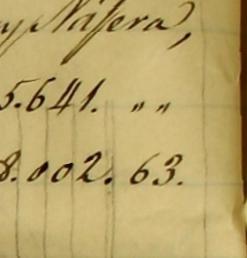 y Násera,
5.641. " "
8.002. 63.